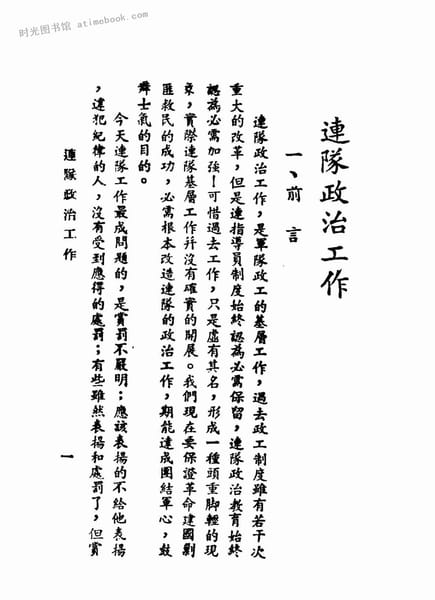 时光图书馆 · atimebook.com
連隊政治工作
一、前言
連隊政治工作，是軍隊政工的基層工作，過去政工制度雖有若干次
重大的改革，但是連指導員制度始終認為必需保留，連隊政治教育始終
認為必需加強！可惜過去工作，只是虛有其名，形成一種頭重脚輕的現
象，實際連隊基層工作幷沒有確實的開展。我們現在要保證革命建國剿
匪救民的成功，必需根本改造連隊的政治工作，期能達成團結軍心，鼓
舞士氣的目的。
今天連隊工作最成問題的，是賞罰不嚴明；應該表揚的不給他表揚
，違犯紀律的人，沒有受到應得的處罰；有些雖然表揚和處罰了，但賞
連隊政治工作
一